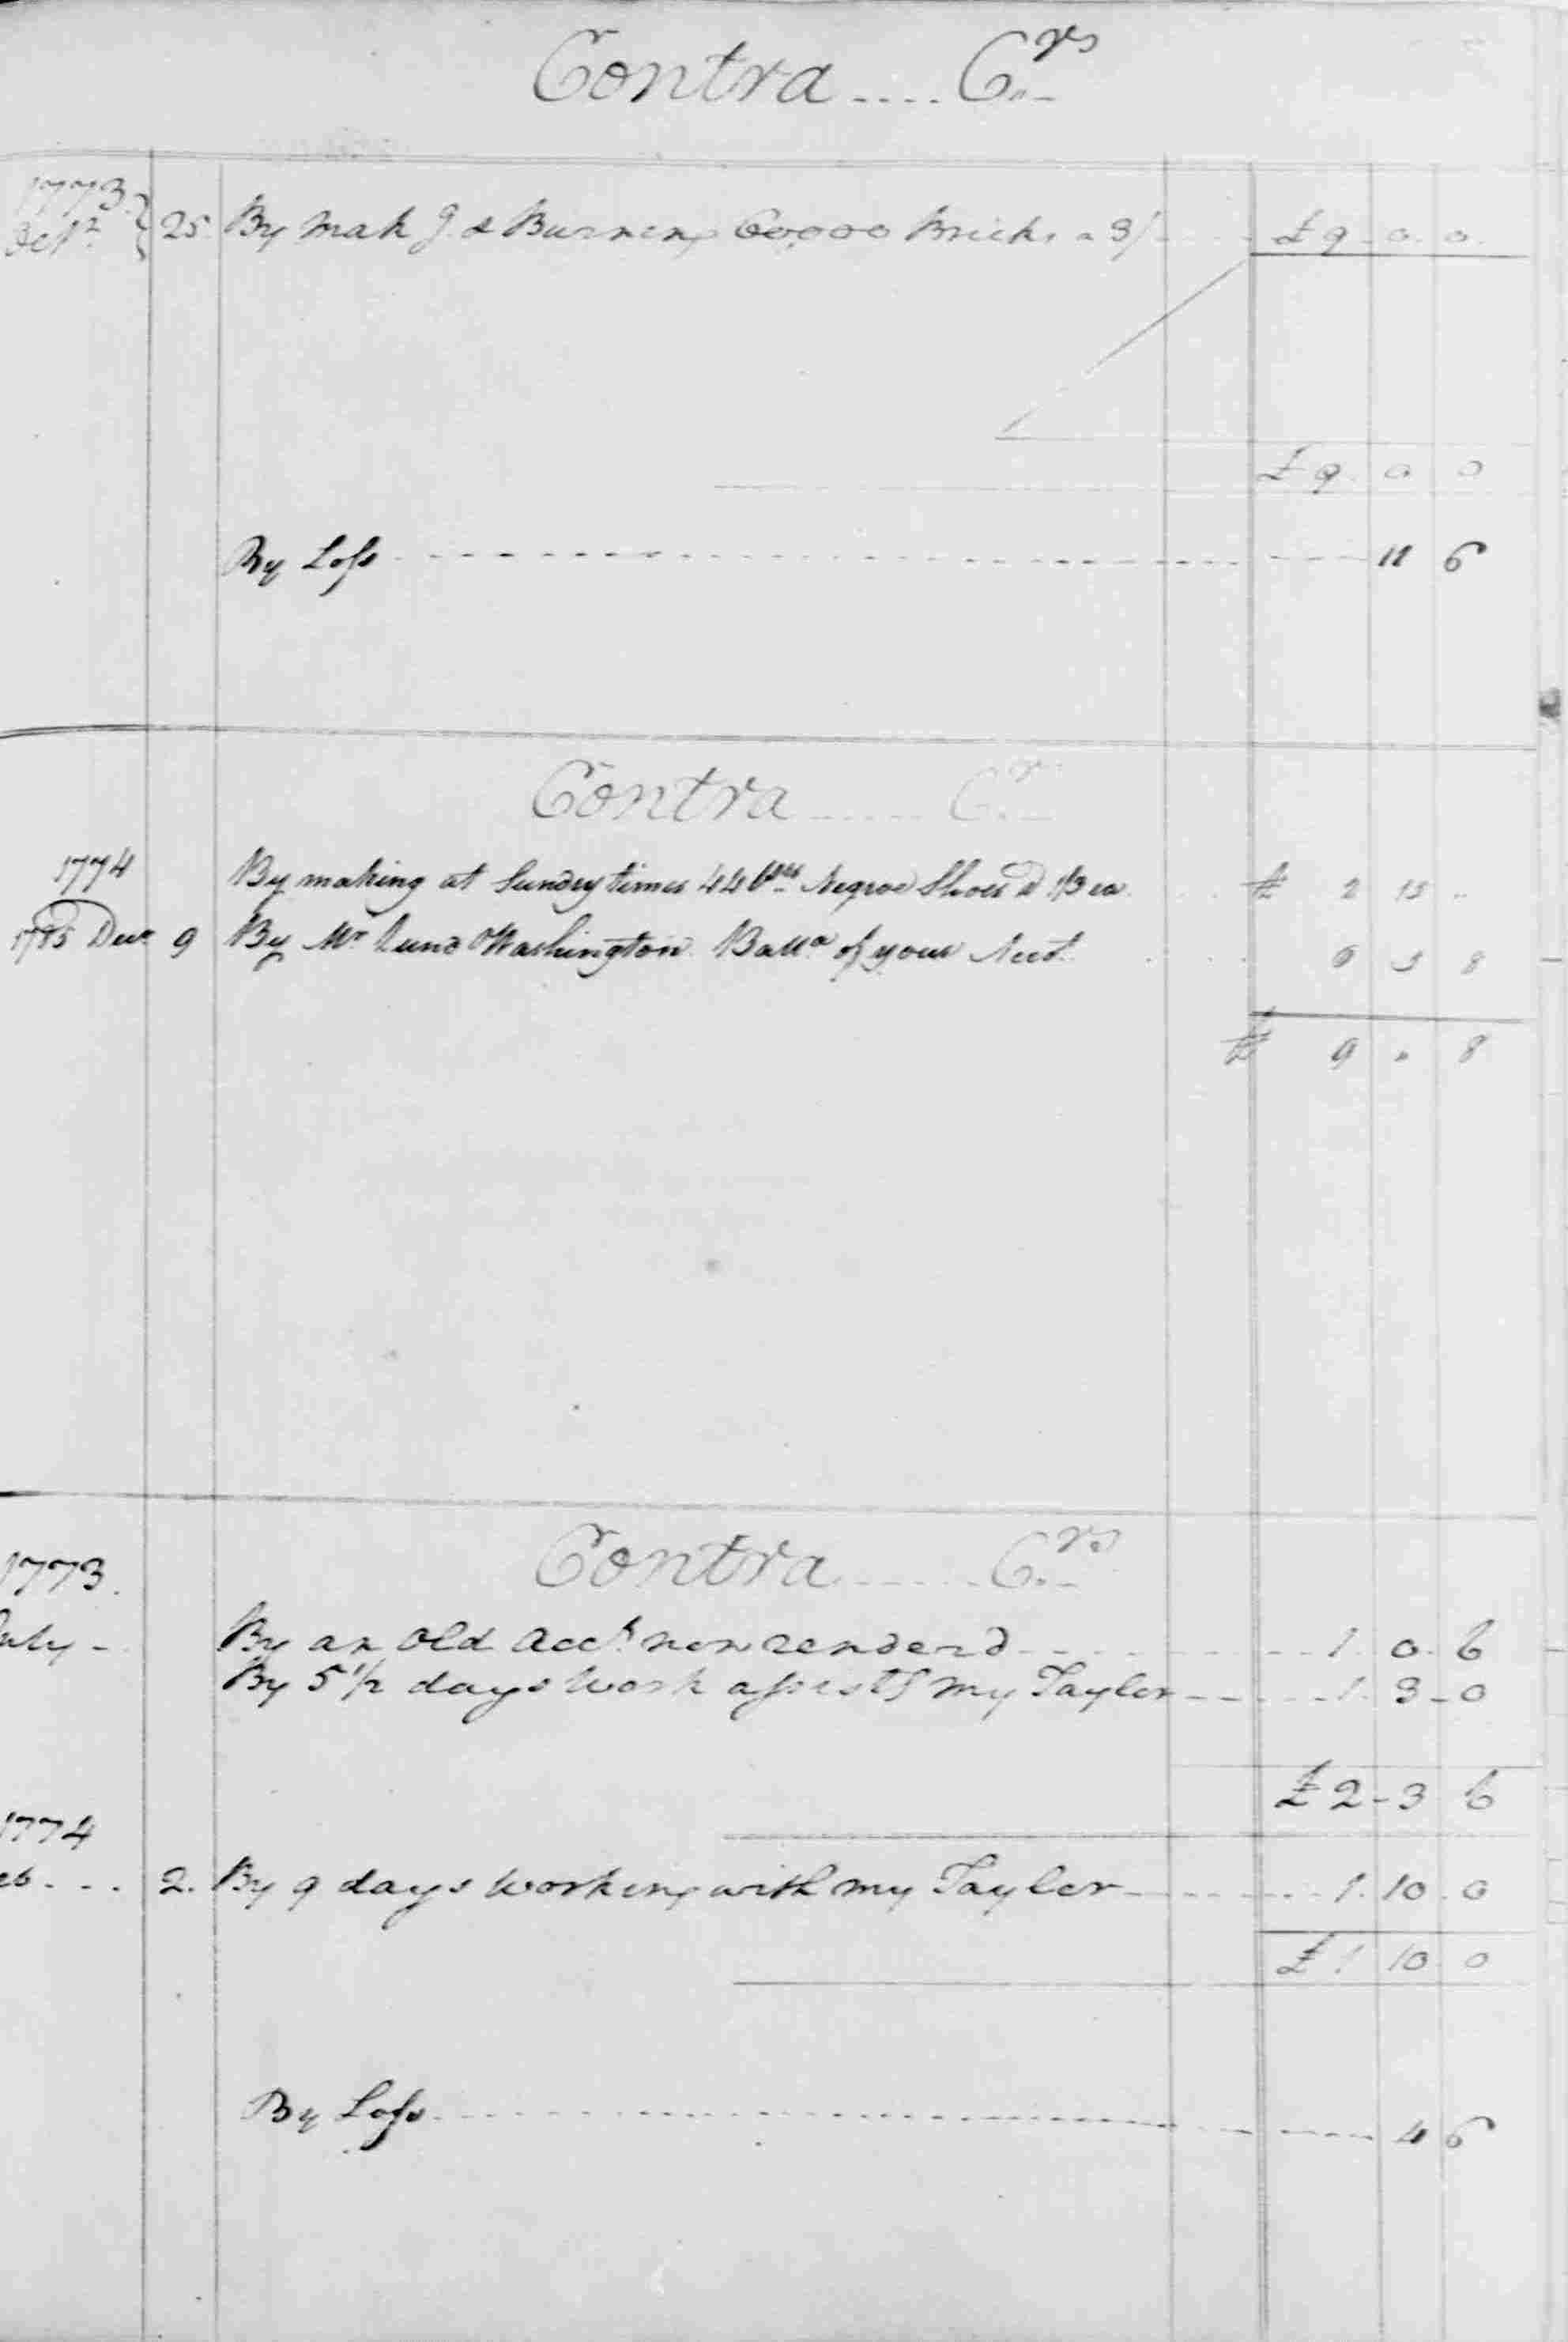 Contra .... Crs
1773
Octr 25 By Makg. & Burning 60,000 Bricks a 3/ £9 0. 0.
£9. 0 0
By Loss 11 6
Contra ..... Cr
1774 By making at Sundry times 44 prs Negroe Shoes @ 1/3 ea. £ 2 15 ..
1785 Decr 9 By Mr Lund Washington Balla of your Acct. 6 5 8
£ 9 " 8
Contra ...... Crs
1773.
July - By an Old Acct. now renderd 1. 0. 6
By 5 1/2 days Work assistg my Taylor 1. 3 - 0
£2 - 3 6
1774
eb... 2. By 9 days working with my Taylor 1. 10. 0
£1 10 0
By Loss 4 6